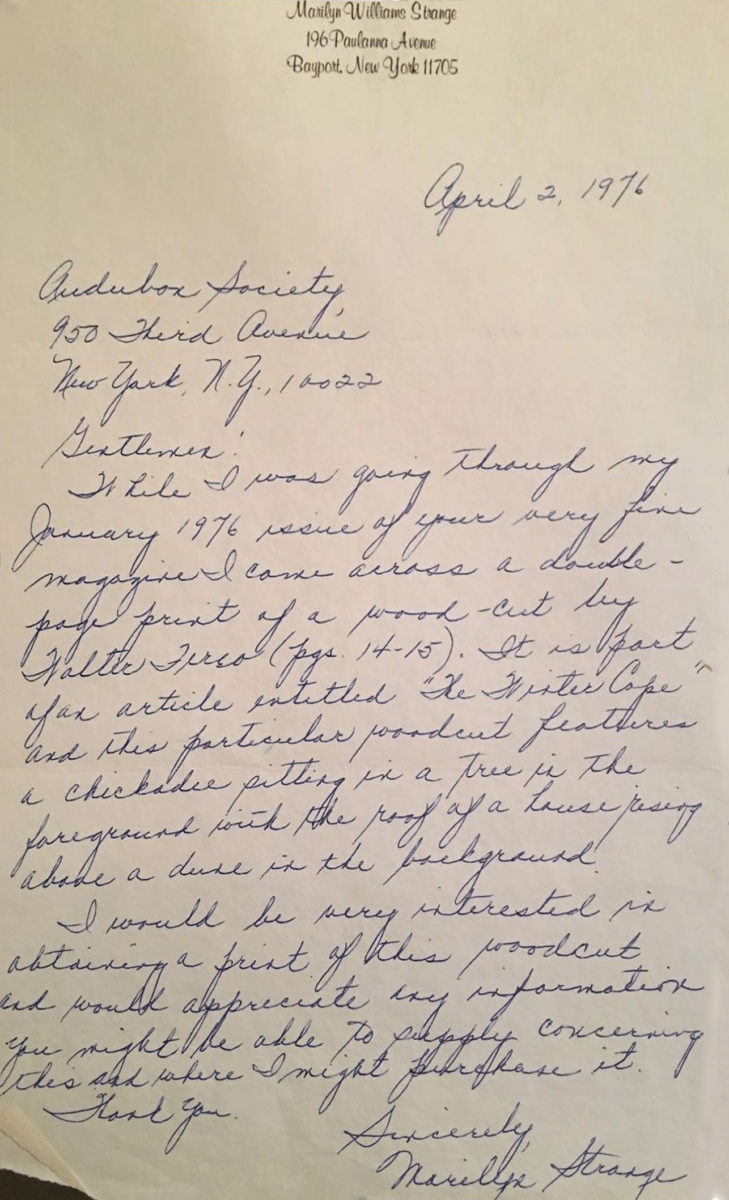 Marilyn Williams Strange
196 Paulanna Avenue
Bayport, New York 11705
April 2, 1976
Audubon Society,
950 Third Avenue
New York, N.Y., 10022
Gentlemen:
While I was going through my
January 1976 issue of your very fine
magazine I came across a double-
page print of a wood-cut by
Walter Ferro (pgs. 14-15). It is part
of an article entitled "The Winter Cape"
and this particular woodcut features
a chickadee sitting in a tree in the
foreground with the roof of a house rising
above a dune in the background.
I would be very interested in
obtaining a print of this woodcut
and would appreciate any information
you might be able to supply concerning
this and where I might purchase it.
Thank You.
Sincerely,
Marilyn Strange